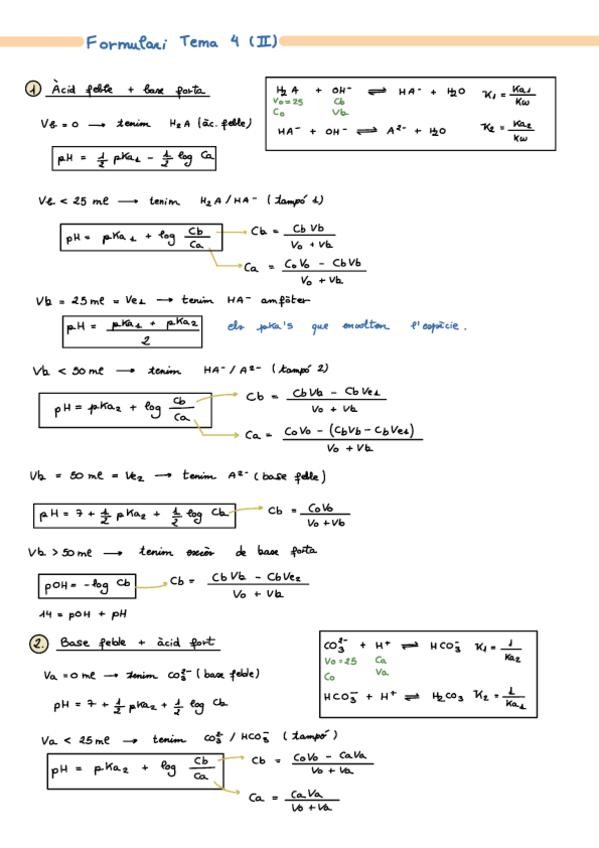 Formulari Tema 4 (II)
1 Àcid feble + base forta
H₂A + OH⁻ ⇌ HA⁻ + H₂O K₁ = Ka₁/Kw
V₀ = 25 Cb
C₀ Vb
HA⁻ + OH⁻ ⇌ A²⁻ + H₂O K₂ = Ka₂/Kw
Vb = 0 → tenim H₂A (àc. feble)
pH = 1/2 pKa₁ - 1/2 log Ca
Vb < 25 ml → tenim H₂A / HA⁻ (tampó 1)
pH = pKa₁ + log Cb/Ca
Cb = Cb Vb / V₀ + Vb
Ca = C₀V₀ - CbVb / V₀ + Vb
Vb = 25 ml = Ve₁ → tenim HA⁻ amfòter
pH = pKa₁ + pKa₂ / 2 els pKa's que envolten l'espècie.
Vb < 50 ml → tenim HA⁻ / A²⁻ (tampó 2)
pH = pKa₂ + log Cb/Ca
Cb = CbVb - CbVe₁ / V₀ + Vb
Ca = C₀V₀ - (CbVb - CbVe₁) / V₀ + Vb
Vb = 50 ml = Ve₂ → tenim A²⁻ (base feble)
pH = 7 + 1/2 pKa₂ + 1/2 log Cb
Cb = C₀V₀ / V₀ + Vb
Vb > 50 ml → tenim excés de base forta
pOH = -log Cb
Cb = CbVb - CbVe₂ / V₀ + Vb
14 = pOH + pH
2. Base feble + àcid fort
CO₃²⁻ + H⁺ ⇌ HCO₃⁻ K₁ = 1/Ka₂
V₀ = 25 Ca
C₀ Va
HCO₃⁻ + H⁺ ⇌ H₂CO₃ K₂ = 1/Ka₁
Va = 0 ml → tenim CO₃²⁻ (base feble)
pH = 7 + 1/2 pKa₂ + 1/2 log Cb
Va < 25 ml → tenim CO₃²⁻ / HCO₃⁻ (tampó)
pH = pKa₂ + log Cb/Ca
Cb = C₀V₀ - CaVa / V₀ + Va
Ca = CaVa / V₀ + Va